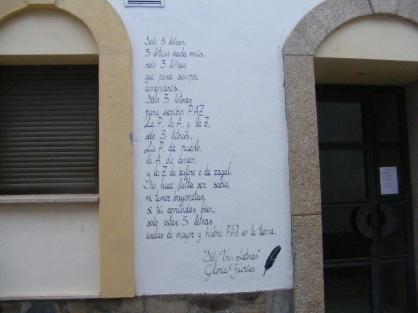 Sólo 3 letras,
3 letras nada más,
sólo 3 letras
que para siempre
aprenderás.
Sólo 3 letras
para escribir PAZ.
La P, la A, y la Z,
sólo 3 letras,
La P, de pueblo,
la A, de amar
y la Z de zafiro o de zagal.
No hace falta ser sabio,
ni tener bayonetas,
si tú aprendes bien,
sólo estas 3 letras,
úsalas de mayor y habrá PAZ en la tierra.
"Sólo Tres Letras"
Gloria Fuertes